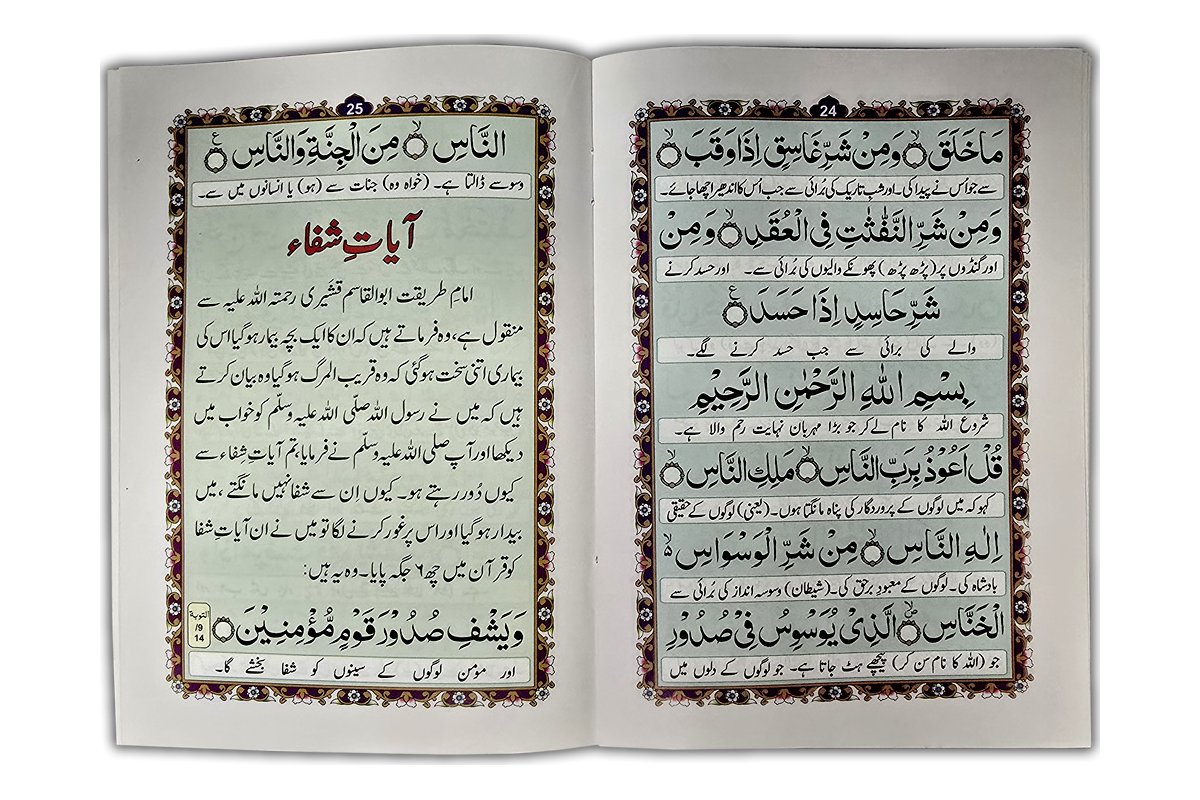 24
مَا خَلَقَ ۙ وَمِنْ شَرِّ غَاسِقٍ اِذَا وَقَبَ ۙ
سے جو اُس نے پیدا کی۔ اور شبِ تاریک کی بُرائی سے جب اُس کا اندھیرا چھا جائے۔
وَمِنْ شَرِّ النَّفّٰثٰتِ فِی الْعُقَدِ ۙ وَمِنْ
اور گنڈوں پر (پڑھ پڑھ) پھونکنے والیوں کی بُرائی سے۔ اور حسد کرنے
شَرِّ حَاسِدٍ اِذَا حَسَدَ ع
والے کی برائی سے جب حسد کرنے لگے۔
بِسْمِ اللّٰهِ الرَّحْمٰنِ الرَّحِیْمِ
شروع اللہ کا نام لے کر جو بڑا مہربان نہایت رحم والا ہے۔
قُلْ اَعُوْذُ بِرَبِّ النَّاسِ ۙ مَلِكِ النَّاسِ ۙ
کہو کہ میں لوگوں کے پروردگار کی پناہ مانگتا ہوں۔ (یعنی) لوگوں کے حقیقی
اِلٰهِ النَّاسِ ۙ مِنْ شَرِّ الْوَسْوَاسِ ۙ
بادشاہ کی۔ لوگوں کے معبودِ برحق کی۔ (شیطان) وسوسہ انداز کی بُرائی سے
الْخَنَّاسِ ۙ الَّذِیْ یُوَسْوِسُ فِیْ صُدُوْرِ
جو (اللہ کا نام سن کر) پیچھے ہٹ جاتا ہے۔ جو لوگوں کے دلوں میں
25
النَّاسِ ۙ مِنَ الْجِنَّةِ وَالنَّاسِ ع
وسوسے ڈالتا ہے۔ (خواہ وہ) جنات سے (ہو) یا انسانوں میں سے۔
آیاتِ شفاء
امامِ طریقت ابوالقاسم قشیری رحمتہ اللہ علیہ سے
منقول ہے، وہ فرماتے ہیں کہ ان کا ایک بچہ بیمار ہو گیا اس کی
بیماری اتنی سخت ہو گئی کہ وہ قریب المرگ ہو گیا وہ بیان کرتے
ہیں کہ میں نے رسول اللہ صلّی اللہ علیہ وسلّم کو خواب میں
دیکھا اور آپ صلی اللہ علیہ وسلّم نے فرمایا، تم آیاتِ شفاء سے
کیوں دُور رہتے ہو۔ کیوں اِن سے شفا نہیں مانگتے، میں
بیدار ہو گیا اور اس پر غور کرنے لگا تو میں نے ان آیاتِ شفا
کو قرآن میں چھ ٦ جگہ پایا۔ وہ یہ ہیں:
وَیَشْفِ صُدُوْرَ قَوْمٍ مُّؤْمِنِیْنَ ۙ
التوبة
9/
14
اور مؤمن لوگوں کے سینوں کو شفا بخشے گا۔